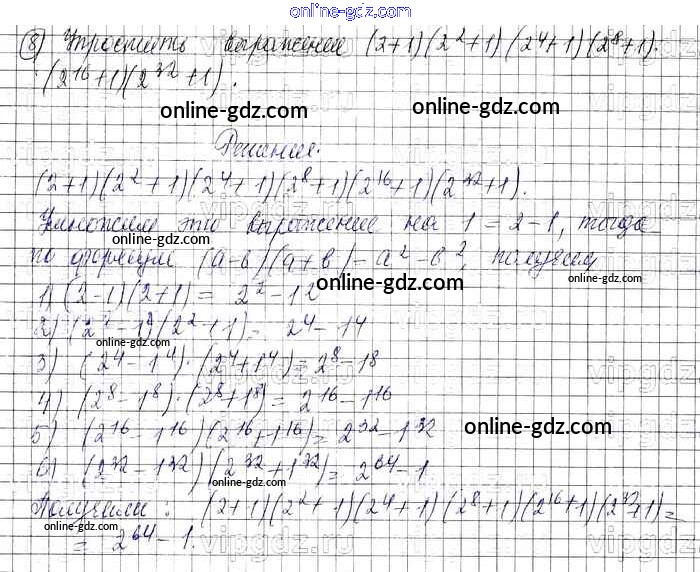 online-gdz.com
8) Упростить выражение (2+1)(2²+1)(2⁴+1)(2⁸+1)·
·(2¹⁶+1)(2³²+1).
online-gdz.com
online-gdz.com
Решение.
(2+1)(2²+1)(2⁴+1)(2⁸+1)(2¹⁶+1)(2³²+1).
Умножим это выражение на 1 = 2-1, тогда
online-gdz.com
по формуле (a-b)(a+b) = a²-b², получим
online-gdz.com
1) (2-1)(2+1) = 2²-1²
2) (2²-1²)(2²+1) = 2⁴-1⁴
online-gdz.com
3) (2⁴-1⁴)·(2⁴+1⁴) = 2⁸-1⁸
4) (2⁸-1⁸)·(2⁸+1⁸) = 2¹⁶-1¹⁶
5) (2¹⁶-1¹⁶)(2¹⁶+1¹⁶) = 2³²-1³²
online-gdz.com
6) (2³²-1³²)(2³²+1³²) = 2⁶⁴-1
online-gdz.com
Получили: (2+1)(2²+1)(2⁴+1)(2⁸+1)(2¹⁶+1)(2³²+1) =
online-gdz.com
= 2⁶⁴-1.
vipgdz.ru